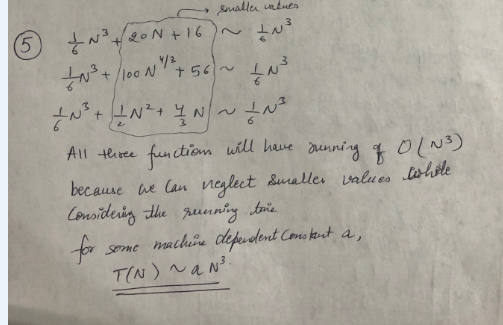 smaller values
⑤ 1/6 N³ + 20N + 16 ~ 1/6 N³
1/6 N³ + 100 N^4/3 + 56 ~ 1/6 N³
1/6 N³ + 1/2 N² + 4/3 N ~ 1/6 N³
All three functions will have running of O(N³)
because we can neglect smaller values while
Considering the running time
for some machine dependent constant a,
T(N) ~ a N³.